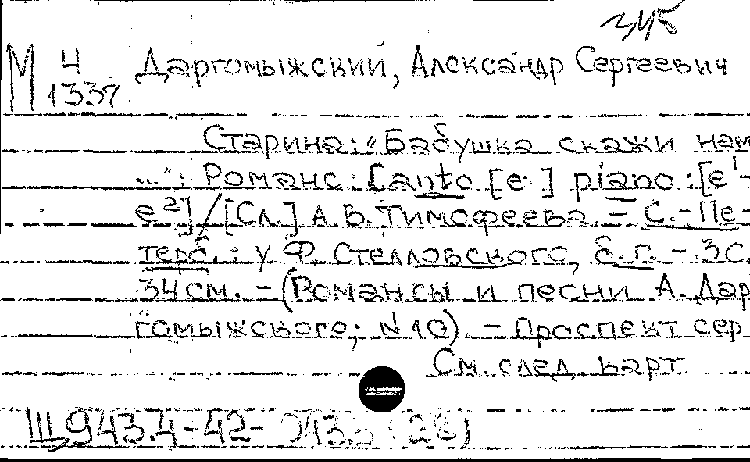 М 4 Даргомыжский, Александр Сергеевич
1337
Старина: "Бабушка скажи нам
...": Романс: Canto [e¹-] piano: [e¹-
e²] / [Сл.] А. В. Тимофеева. - С.-Пе-
терб.: у Ф. Стелловского, б. г. - 3 с.
34 см. - (Романсы и песни А. Дар
гомыжского; N 10). - Проспект сер
См. след. карт
Щ943.4-42-